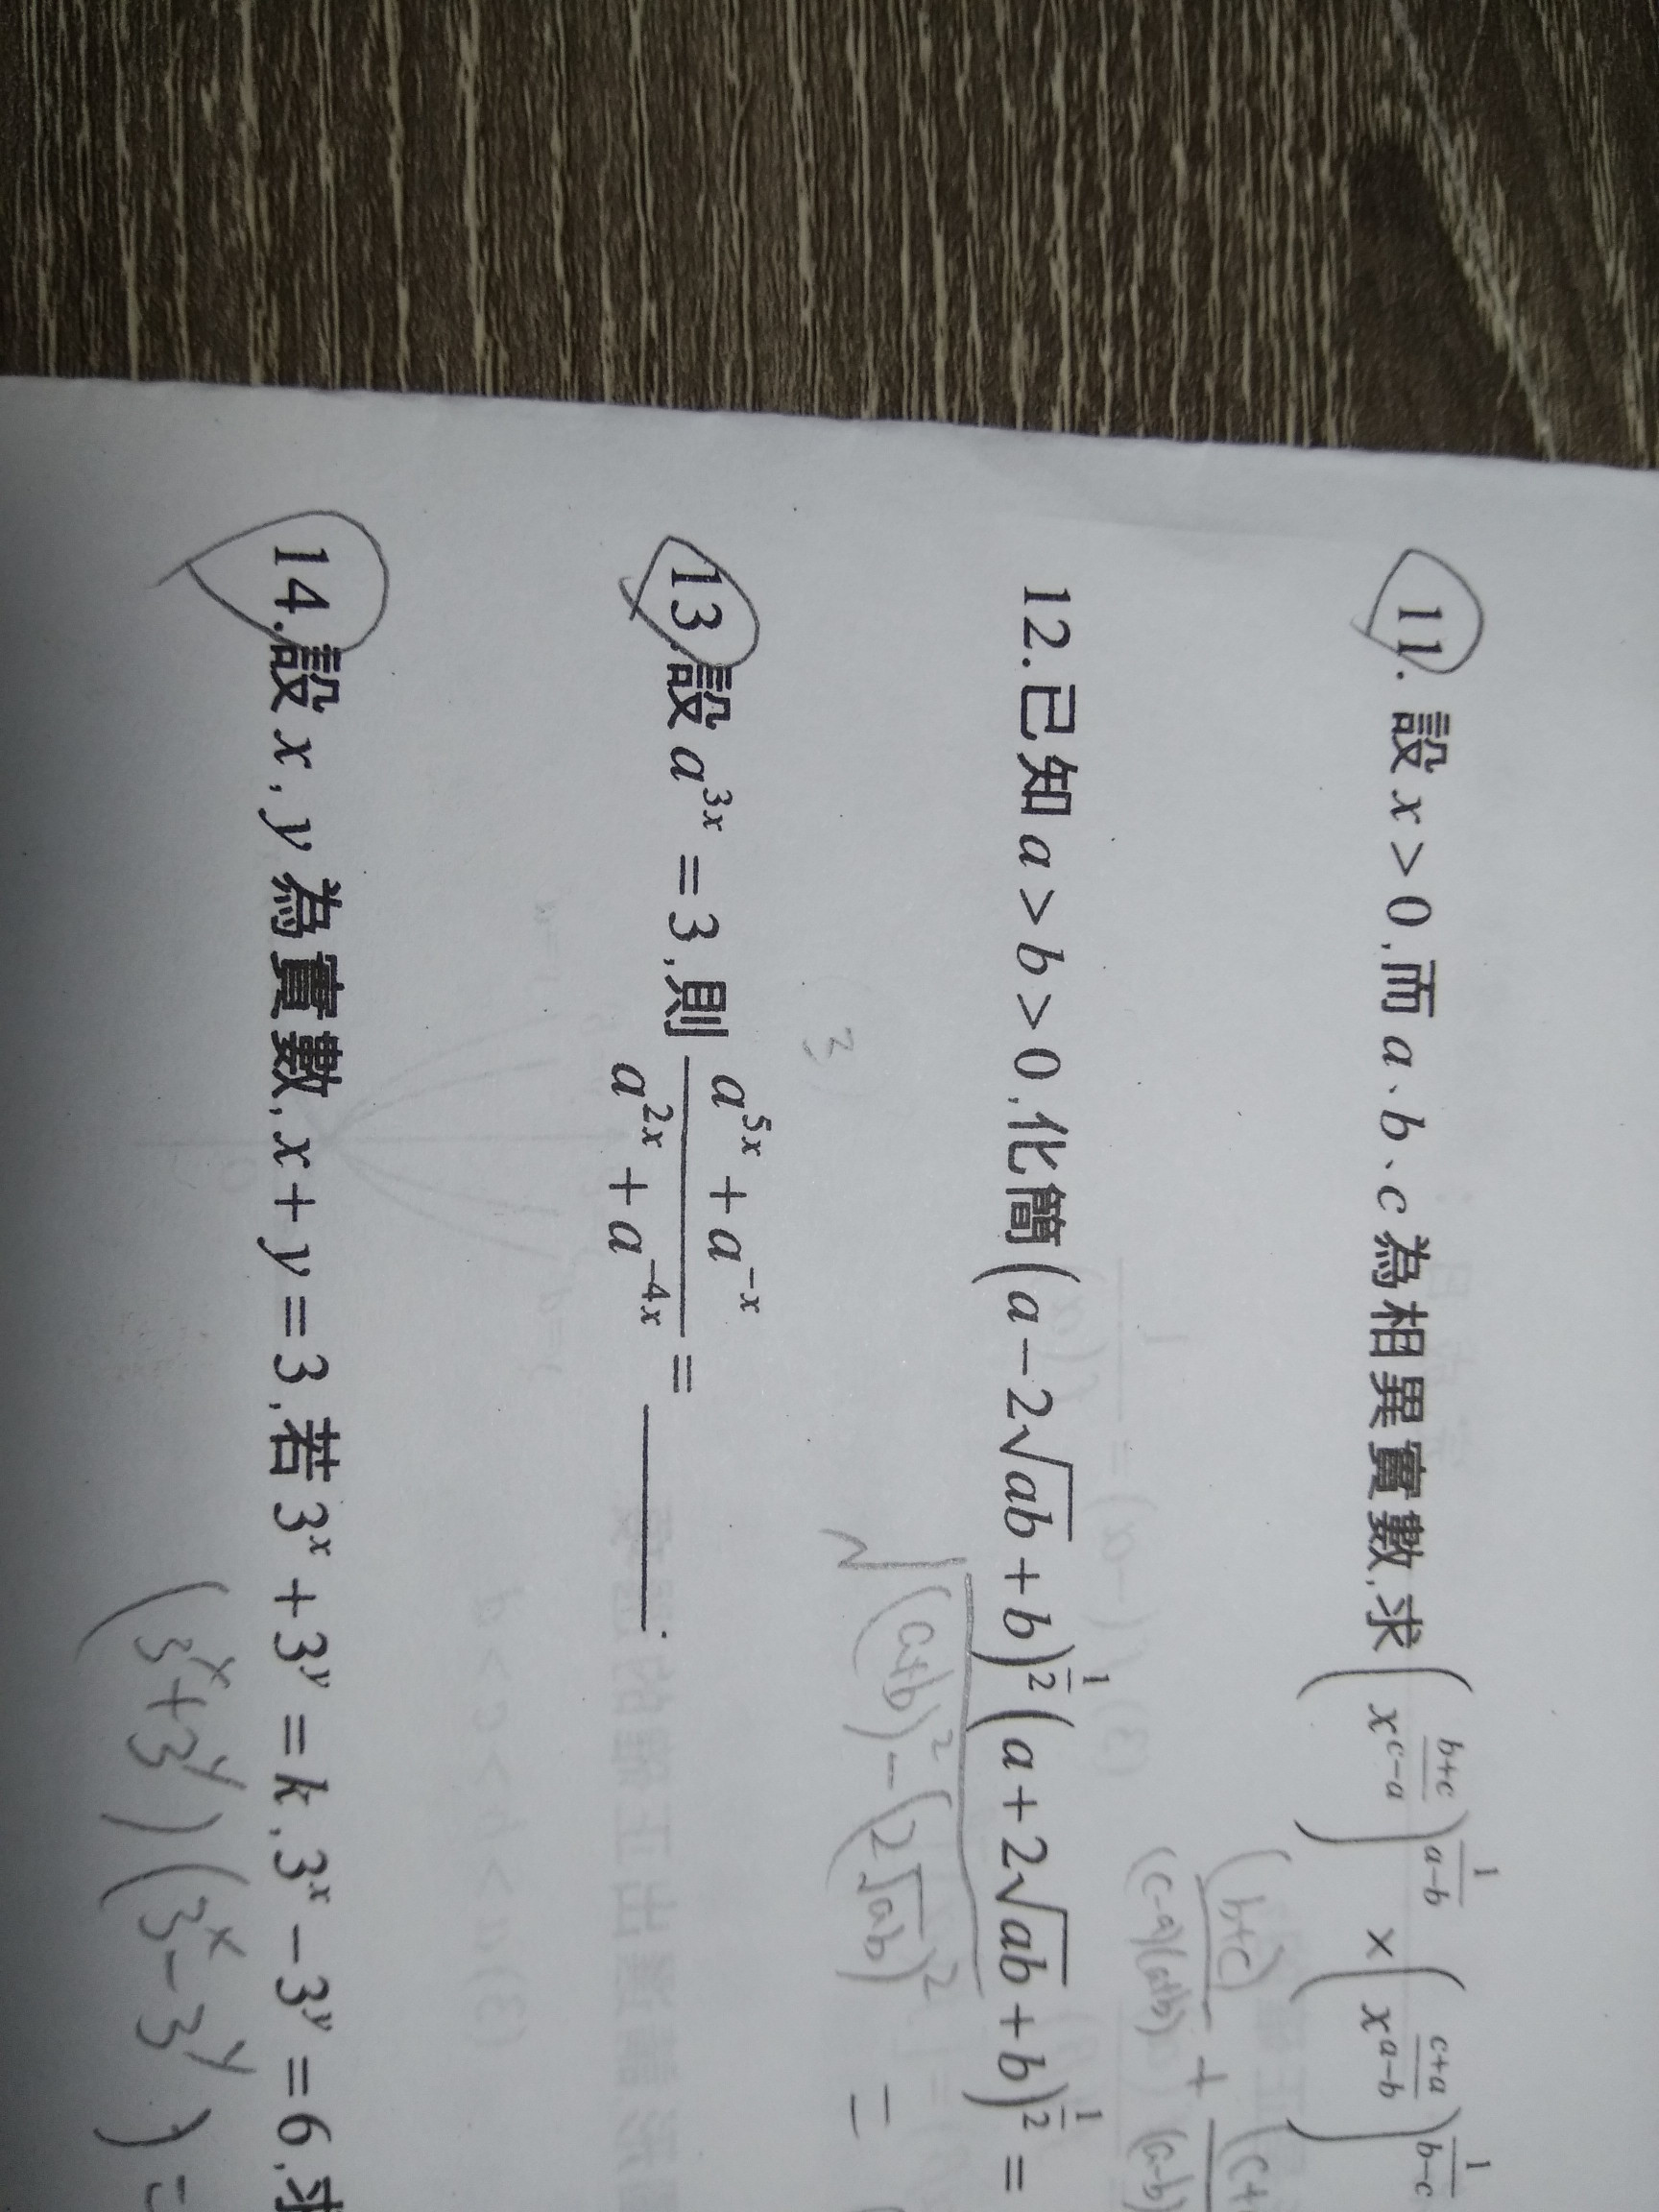 11. 設 x > 0, 而 a、b、c 為相異實數, 求 (x^{\frac{b+c}{c-a}})^{\frac{1}{a-b}} × (x^{\frac{c+a}{a-b}})^{\frac{1}{b-c}}
\frac{(b+c)}{(c-a)(a-b)} + \frac{(c+}{(a-b)
12. 已知 a > b > 0, 化簡 (a-2\sqrt{ab}+b)^{\frac{1}{2}} (a+2\sqrt{ab}+b)^{\frac{1}{2}} =
\sqrt{(a+b)^2-(2\sqrt{ab})^2} =
13. 設 a^{3x} = 3, 則 \frac{a^{5x}+a^{-x}}{a^{2x}+a^{-4x}} = ______.
14. 設 x, y 為實數, x + y = 3, 若 3^x + 3^y = k, 3^x - 3^y = 6, 求
(3^x+3^y)(3^x-3^y) =